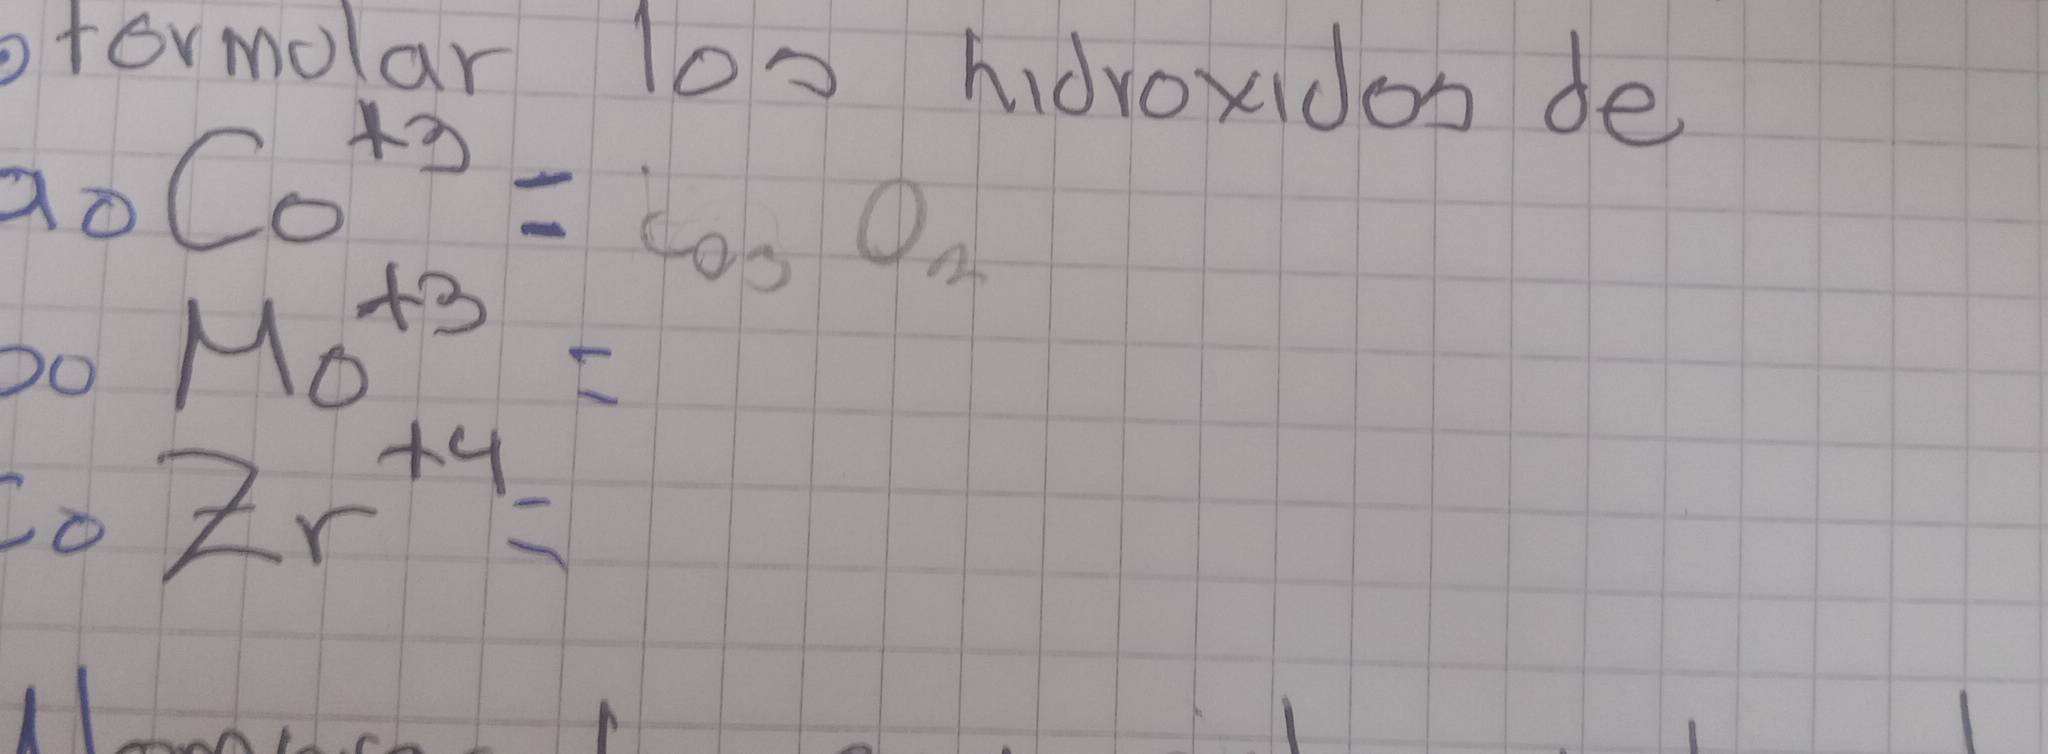 formular los hidroxidos de
a. Co +3 = Co3 O2
b. Mo +3 =
c. Zr +4 =